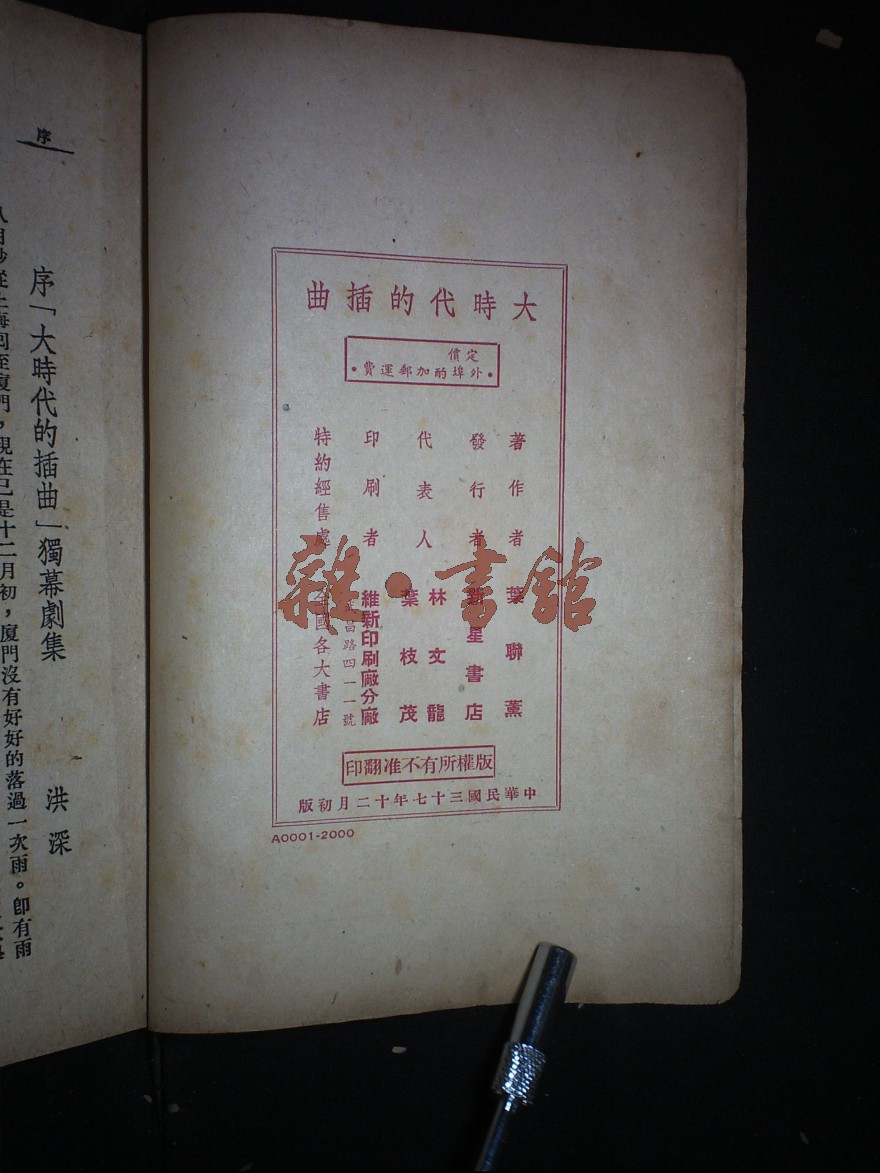 大時代的插曲
定價
•外埠酌加郵運費•
著作者 葉聯薰
發行者 新星書店
代表人 林文龍
葉枝茂
印刷者 維新印刷廠分廠
昌路四一一號
特約經售處 全國各大書店
版權所有不准翻印
中華民國三十七年十二月初版
A0001-2000
雜·書館
序
序「大時代的插曲」獨幕劇集
洪深
回至廈門，現在已是十二月初，廈門沒有好好的落過一次雨。卽有雨